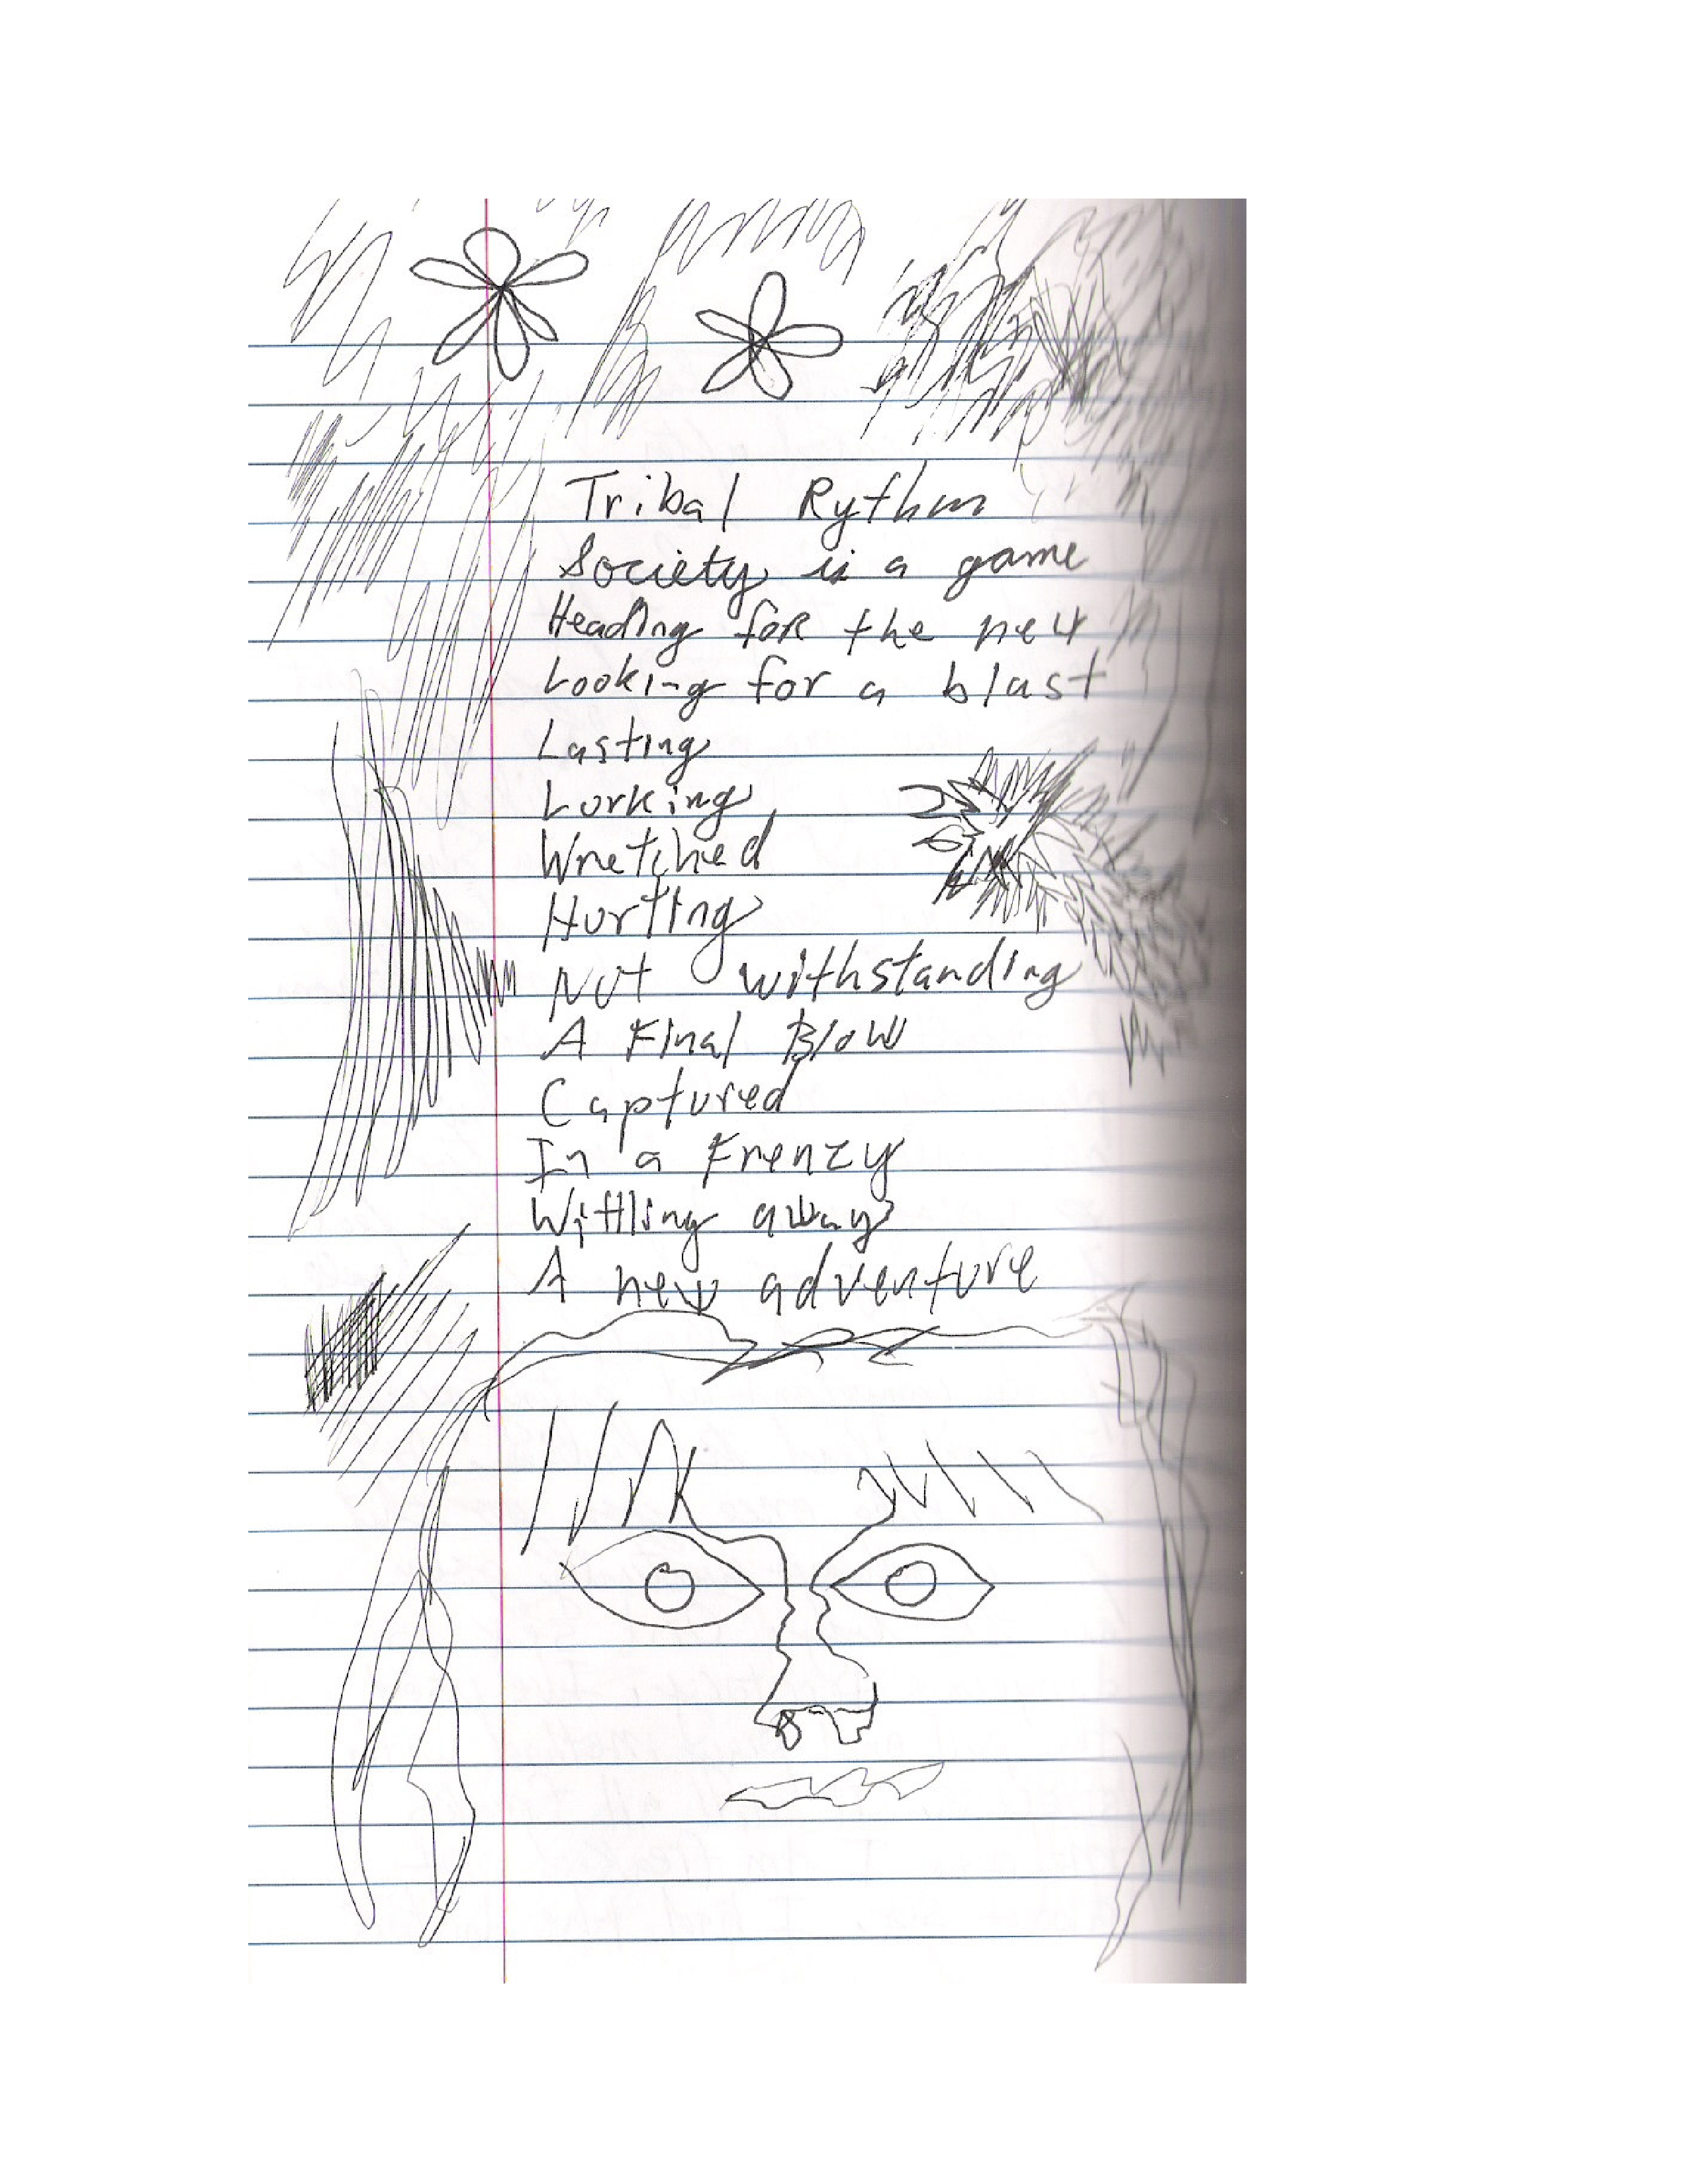 Tribal Rythm
Society is a game
Heading for the new
Looking for a blast
Lasting
Lurking
Wretched
Hurting
Not withstanding
A Final Blow
Captured
In a Frenzy
Wittling away
A new adventure